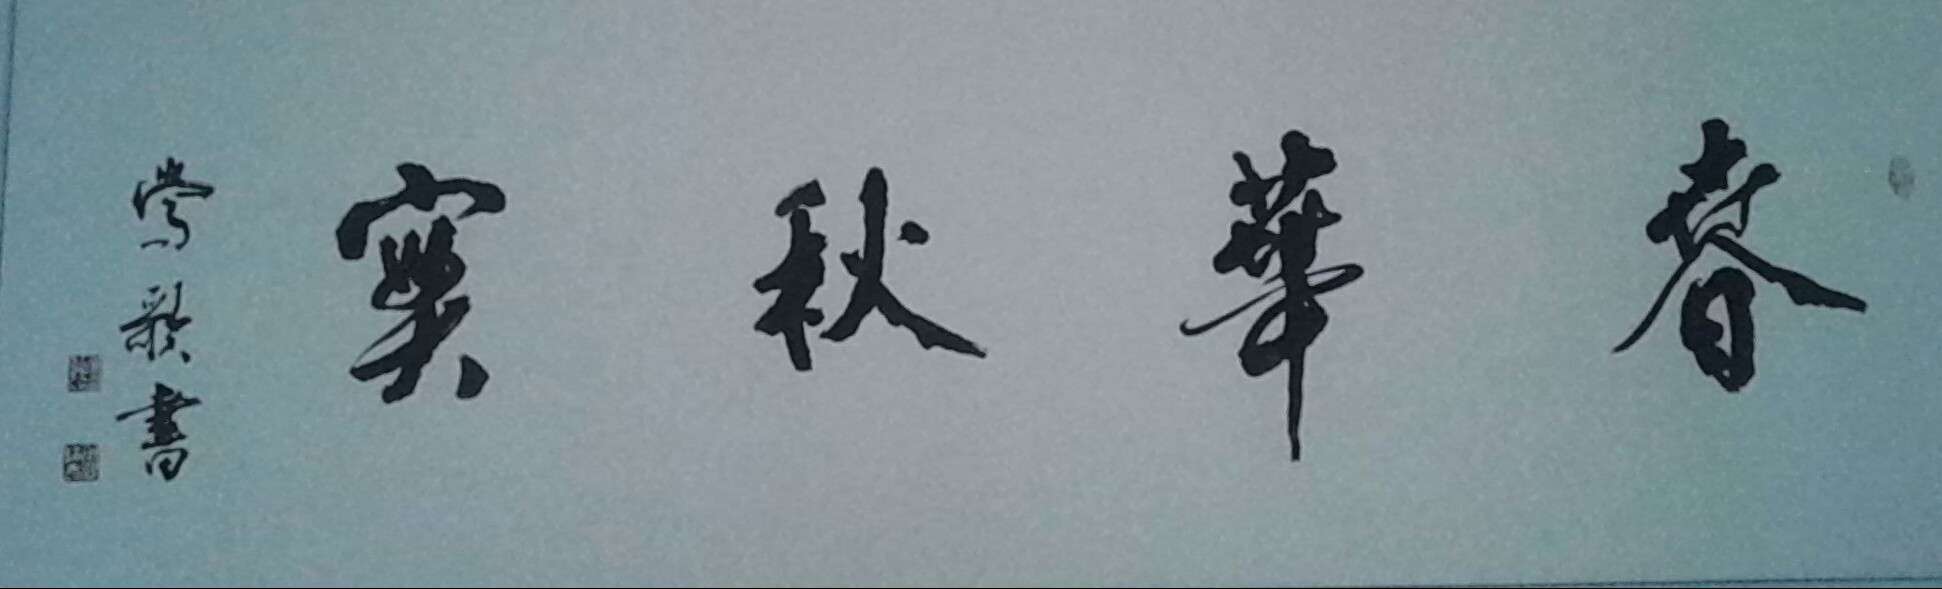 春華秋實
鶯歌書